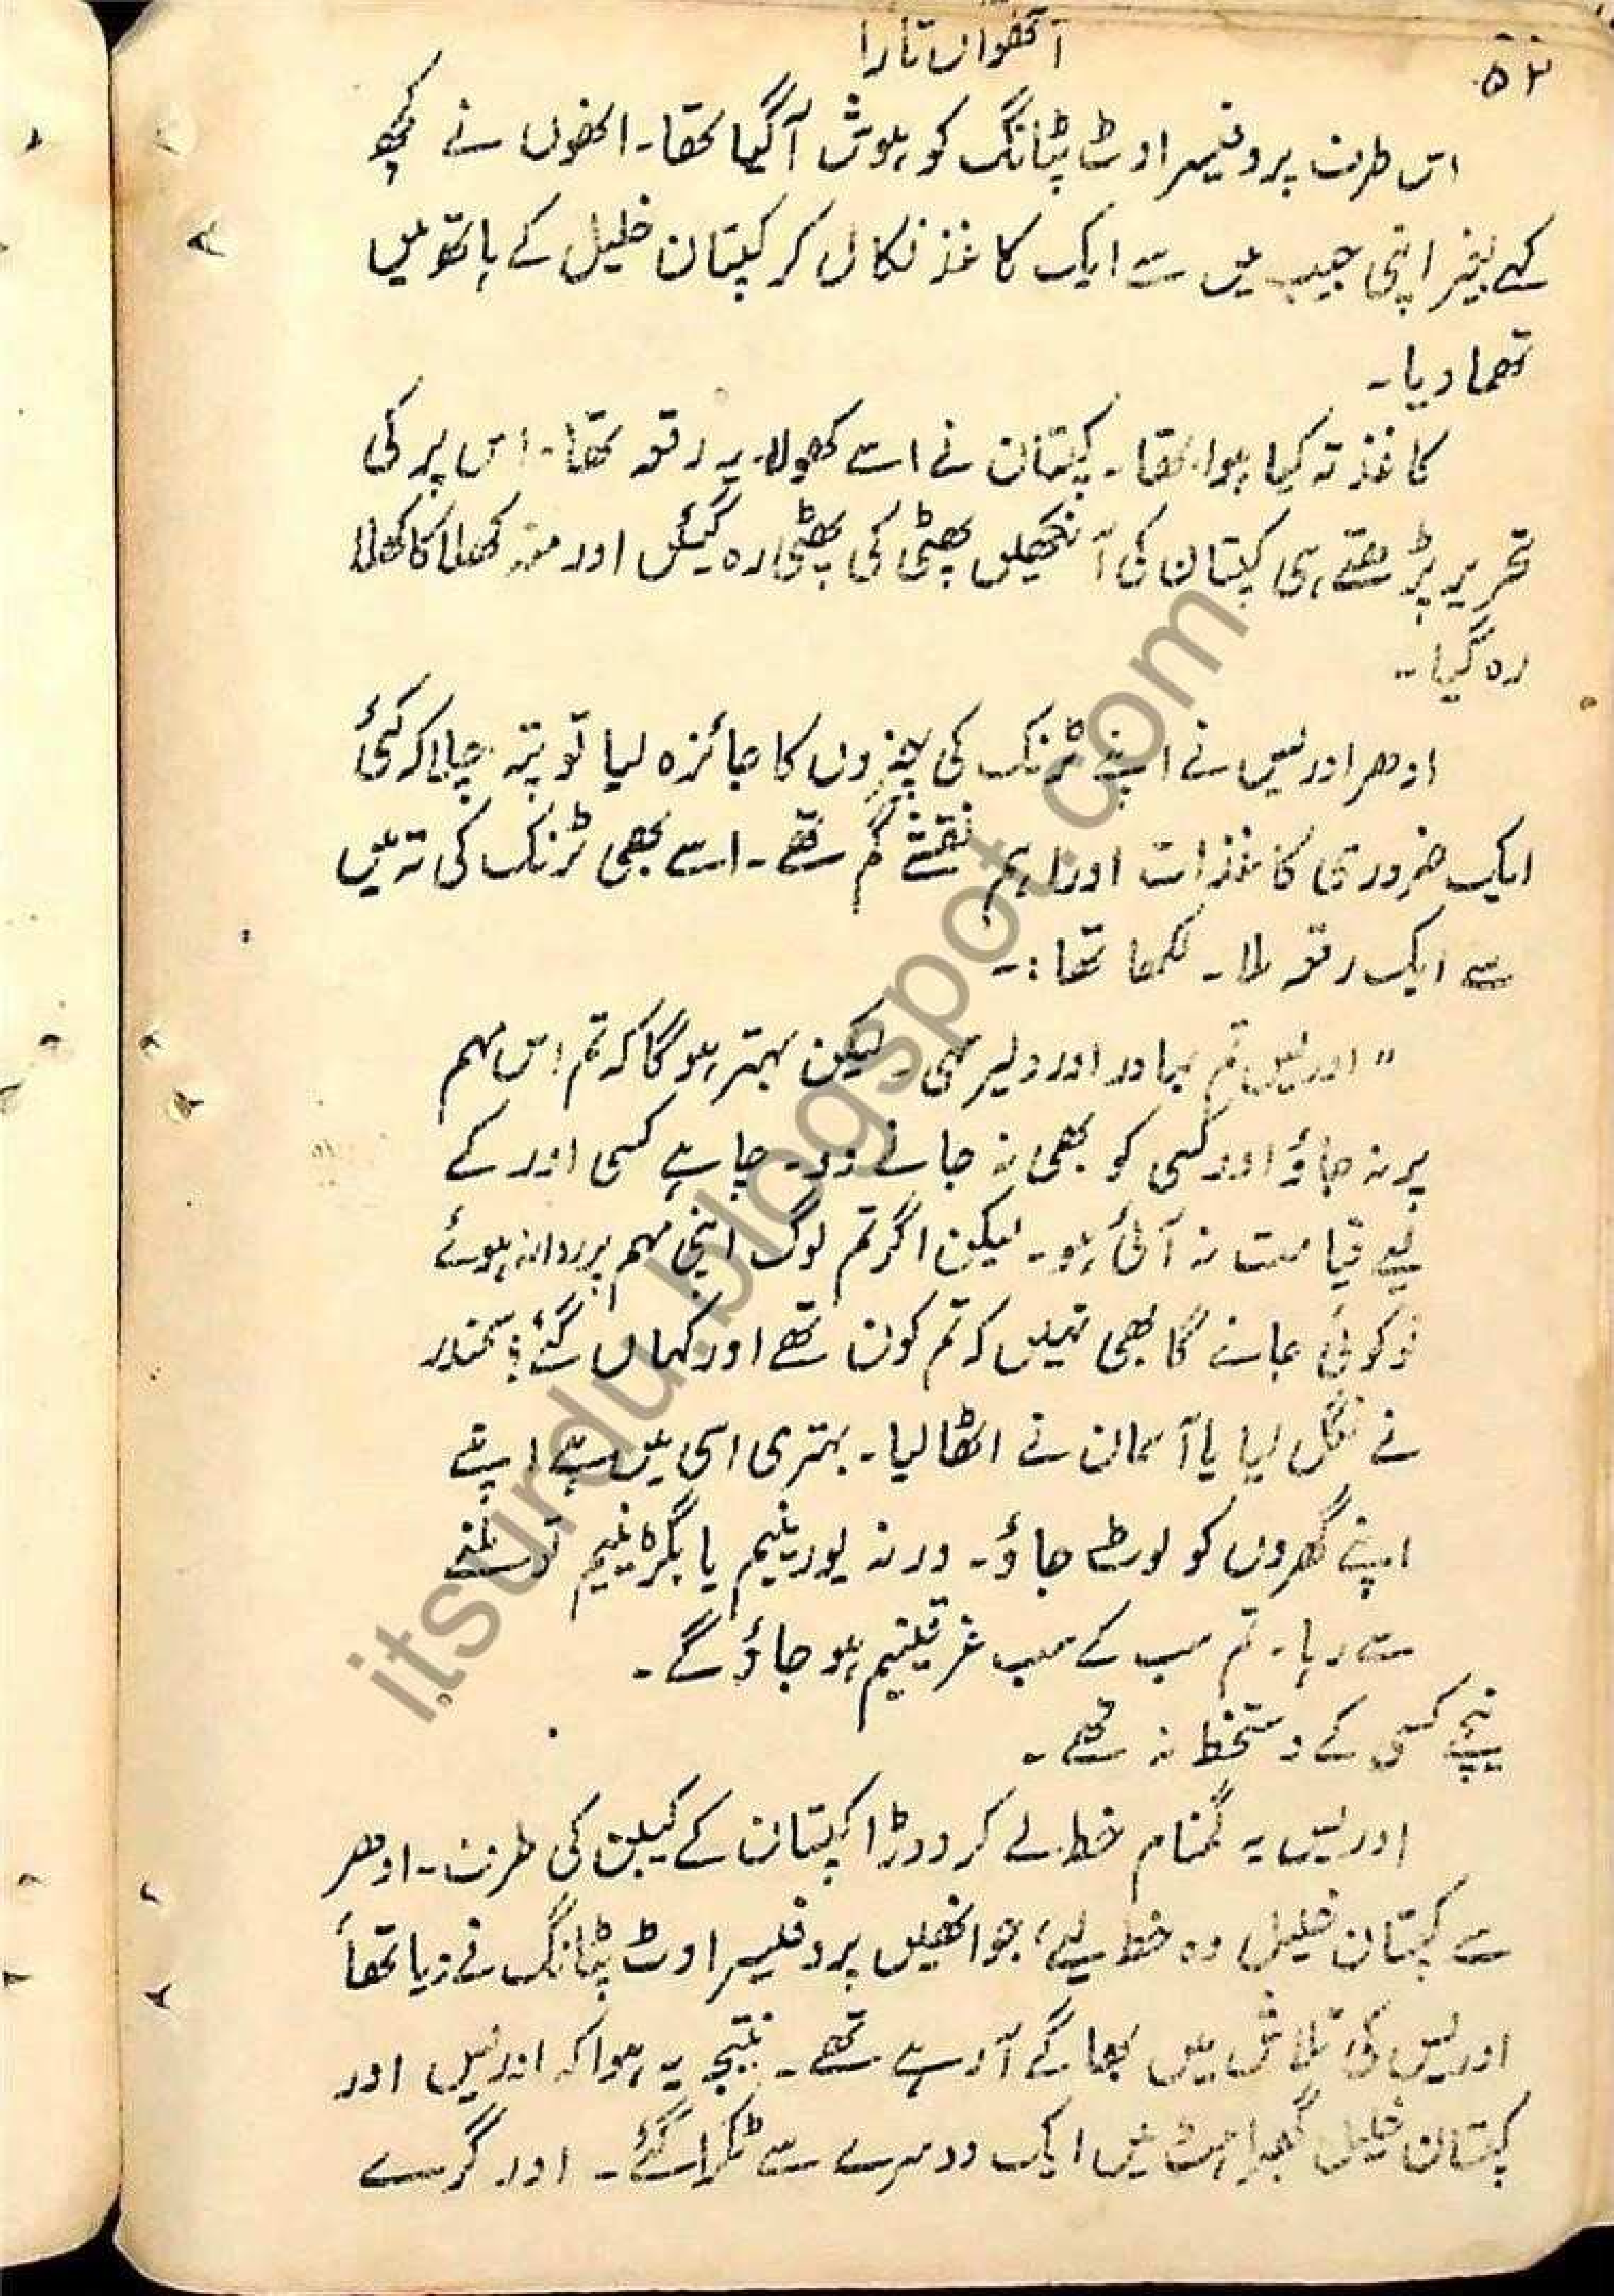 ۵۲
آٹھواں تارا
اس طرف پروفیسر اوٹ پٹانگ کو ہوش آگیا تھا۔ انھوں نے کچھ
کہے بغیر اپنی جیب میں سے ایک کاغذ نکال کر کپتان خلیل کے ہاتھ میں
تھما دیا۔
کاغذ تہ کیا ہوا تھا۔ کپتان نے اسے کھولا۔ یہ رقعہ تھا۔ اس پر کی
تحریر پڑھتے ہی کپتان کی آنکھیں پھٹی کی پھٹی رہ گیئں اور منہ کھلا کا کھلا
رہ گیا۔
ادھر ادریس نے اپنے ٹرنک کی چیزوں کا جائزہ لیا تو پتہ چلا کہ کئی
ایک ضروری کاغذات اور اہم نقشے گم تھے۔ اسے بھی ٹرنک کی تہ میں
سے ایک رقعہ ملا۔ لکھا تھا:۔
"ادریس تم بہادر اور دلیر سہی۔ لیکن بہتر ہوگا کہ تم اس مہم
پر نہ جاؤ اور کسی کو بھی نہ جانے دو۔ چاہے کسی اور کے
لیے قیامت نہ آئی ہو۔ لیکن اگر تم لوگ اپنی مہم پر روانہ ہوئے
تو کوئی جانے گا بھی نہیں کہ تم کون تھے اور کہاں گئے؛ سمندر
نے نگل لیا یا آسمان نے اٹھا لیا۔ بہتری اسی میں ہے اپنے
اپنے گھروں کو لوٹ جاؤ۔ ورنہ یورینیم یا بگڑینیم تو ملنے
سے رہا۔ تم سب کے سب غرقینیم ہو جاؤ گے۔
نیچے کسی کے دستخط نہ تھے۔
ادریس یہ گمنام خط لے کر دوڑا کپتان کے کیبن کی طرف۔ ادھر
سے کپتان خلیل وہ خط لیے، جو انھیں پروفیسر اوٹ پٹانگ نے دیا تھا
ادریس کی تلاش میں بھاگے آرہے تھے۔ نتیجہ یہ ہوا کہ ادریس اور
کپتان خلیل گھبراہٹ میں ایک دوسرے سے ٹکرا گئے۔ اور گرے
itsurdu.blogspot.com